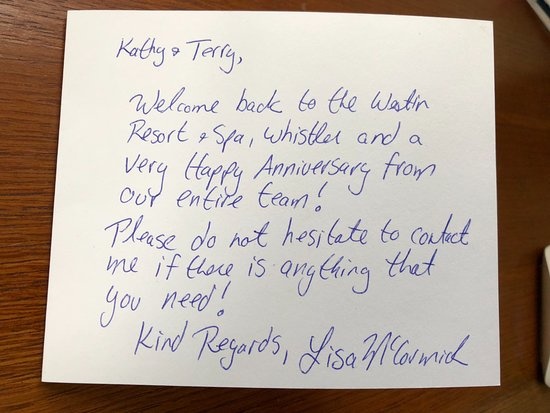 Kathy & Terry,
Welcome back to the Westin
Resort & Spa, Whistler and a
very Happy Anniversary from
our entire team!
Please do not hesitate to contact
me if there is anything that
you need!
Kind Regards, Lisa McCormick